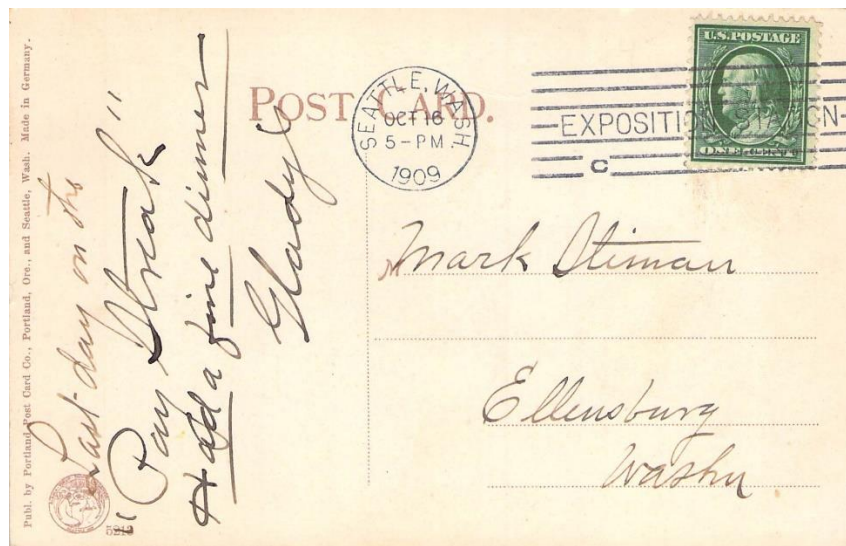 Publ. by Portland Post Card Co., Portland, Ore., and Seattle, Wash. Made in Germany.
Last day on the
"Pay Streak"
Had a fine dinner
Gladys
5213
POST CARD.
SEATTLE, WASH.
OCT 16
5-PM
1909
EXPOSITION STATION
C
U.S. POSTAGE
ONE CENT
Mark Stiman
Ellensburg
Washn